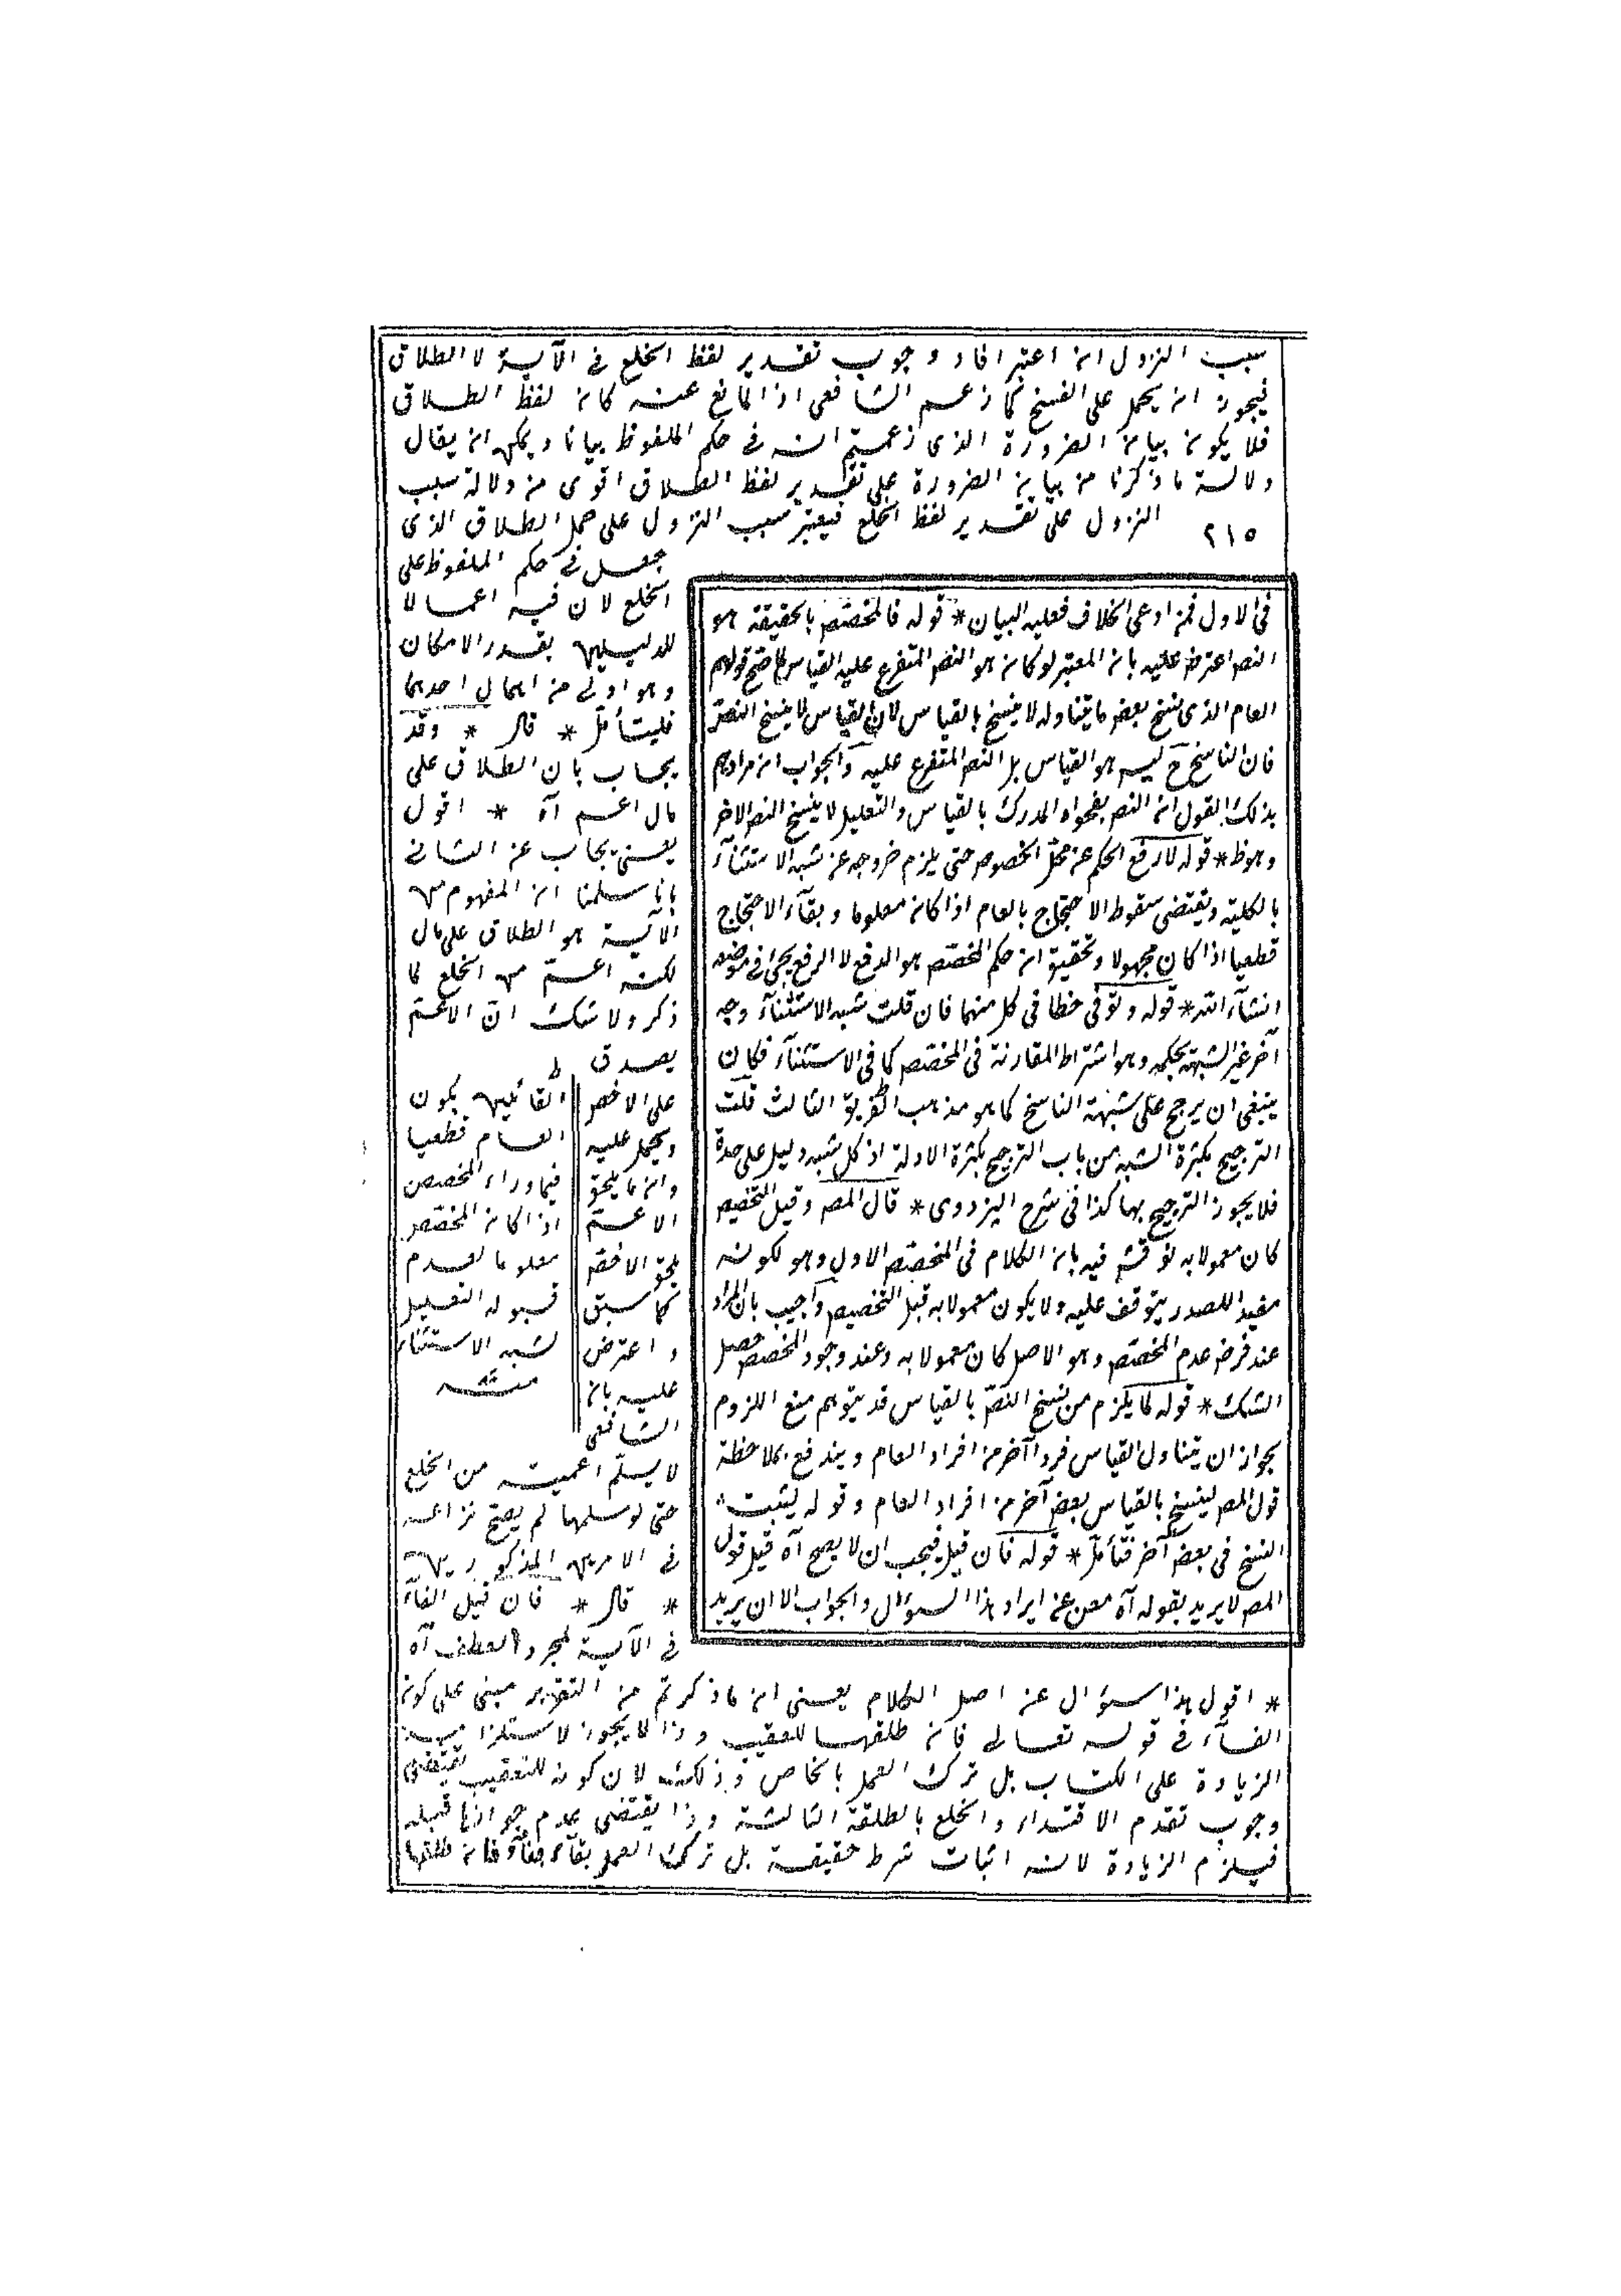 سبب النزول ان اعتبر افاد وجوب تقدير لفظ الخلع فى الآية لا الطلاق
فيجوز ان يحمل على الفسخ كما زعم الشافعى اذ المانع عنه كان لفظ الطلاق
فلا يكون بيان الضرورة الذى زعمتم انه فى حكم الملفوظ بيانا ويمكن ان يقال
دلالة ما ذكرنا من بيان الضرورة على تقدير لفظ الطلاق اقوى من دلالة سبب
النزول على تقدير لفظ الخلع فيعتبر سبب النزول على حمل الطلاق الذى
٢١٥
جعل فى حكم الملفوظ على
الخلع لان فيه اعمالا
للدليلين بقدر الامكان
وهو اولى من اهمال احدهما
فليتأمل * قال * وقد
يجاب بان الطلاق على
مال اعم آه * اقول
يعنى يجاب عن الثانى
بانا سلمنا ان المفهوم من
الآية هو الطلاق على مال
لكنه اعم من الخلع لما
ذكر ولا شك ان الاعم
يصدق
على الاخص
ويحمل عليه
وان ما يلحق
الاعم
يلحق الاخص
كما سبق
واعترض
عليه بان
الشافعى
لا يسلم اعميته من الخلع
حتى لو سلمها لم يصح نزاعه
فى الامرين المذكورين
* قال * فان قيل الفاء
فى الآية لمجرد العطف آه
* اقول هذا سؤال عن اصل الكلام يعنى ان ما ذكرتم من التقرير مبنى على كون
الفاء فى قوله تعالى فان طلقها للتعقيب وذا لا يجوز لاستلزامه
الزيادة على الكتاب بل ترك العمل بالخاص وذلك لان كونه للتعقيب يقتضى
وجوب تقدم الافتداء والخلع بالطلقة الثالثة وذا يقتضى عدم جوازها قبله
فيلزم الزيادة لانه اثبات شرط حقيقة بل ترك العمل بفاء فان طلقها
القائلين بكون
العام قطعيا
فيما وراء المخصص
اذا كان المخصص
معلوما لعدم
قبوله التعليل
لشبه الاستثناء
منه
فى الاول فمن ادعى الخلاف فعليه البيان * قوله فالمخصص بالحقيقة هو
النص اعترض عليه بان المعتبر لو كان هو النص المتفرع عليه القياس لما صح قولهم
العام الذى نسخ بعض ما يتناوله لا ينسخ بالقياس لان القياس لا ينسخ النص
فان الناسخ ح ليس هو القياس بل النص المتفرع عليه والجواب ان مرادهم
بذلك القول ان النص بفحواه المدرك بالقياس والتعليل لا ينسخ النص الاخر
وهو ظ * قوله لا رفع الحكم عن محل الخصوص حتى يلزم خروجه عن شبه الاستثناء
بالكلية ويقتضى سقوط الاحتجاج بالعام اذا كان معلوما وبقاء الاحتجاج
قطعيا اذا كان مجهولا وتحقيق ان حكم المخصص هو الدفع لا الرفع يجئ فى موضعه
انشاء الله * قوله وتوفى حظا فى كل منهما فان قلت شبه الاستثناء وجه
آخر غير الشبهة بحكمه وهو اشتراط المقارنة فى المخصص كما فى الاستثناء فكان
ينبغى ان يرجح على شبهة الناسخ كما هو مذهب الفريق الثالث قلت
الترجيح بكثرة الشبه من باب الترجيح بكثرة الادلة اذ كل شبه دليل على حدة
فلا يجوز الترجيح بها كذا فى شرح البزدوى * قال المص وقبل التخصيص
كان معمولا به نوقش فيه بان الكلام فى المخصص الاول وهو لكونه
مغيرا للصدر يتوقف عليه ولا يكون معمولا به قبل التخصيص واجيب بان المراد
عند فرض عدم المخصص وهو الاصل كان معمولا به وعند وجود المخصص حصل
الشك * قوله لما يلزم من نسخ النص بالقياس قد يتوهم منع اللزوم
بجواز ان يتناول القياس فردا آخر من افراد العام ويندفع بملاحظة
قول المص لينسخ بالقياس بعض آخر من افراد العام وقوله ليثبت
النسخ فى بعض آخر فتأمل * قوله فان قيل فيجب ان لا يصح آه قيل قول
المص لا يريد بقوله آه مغن عن ايراد هذا السؤال والجواب الا ان يريد